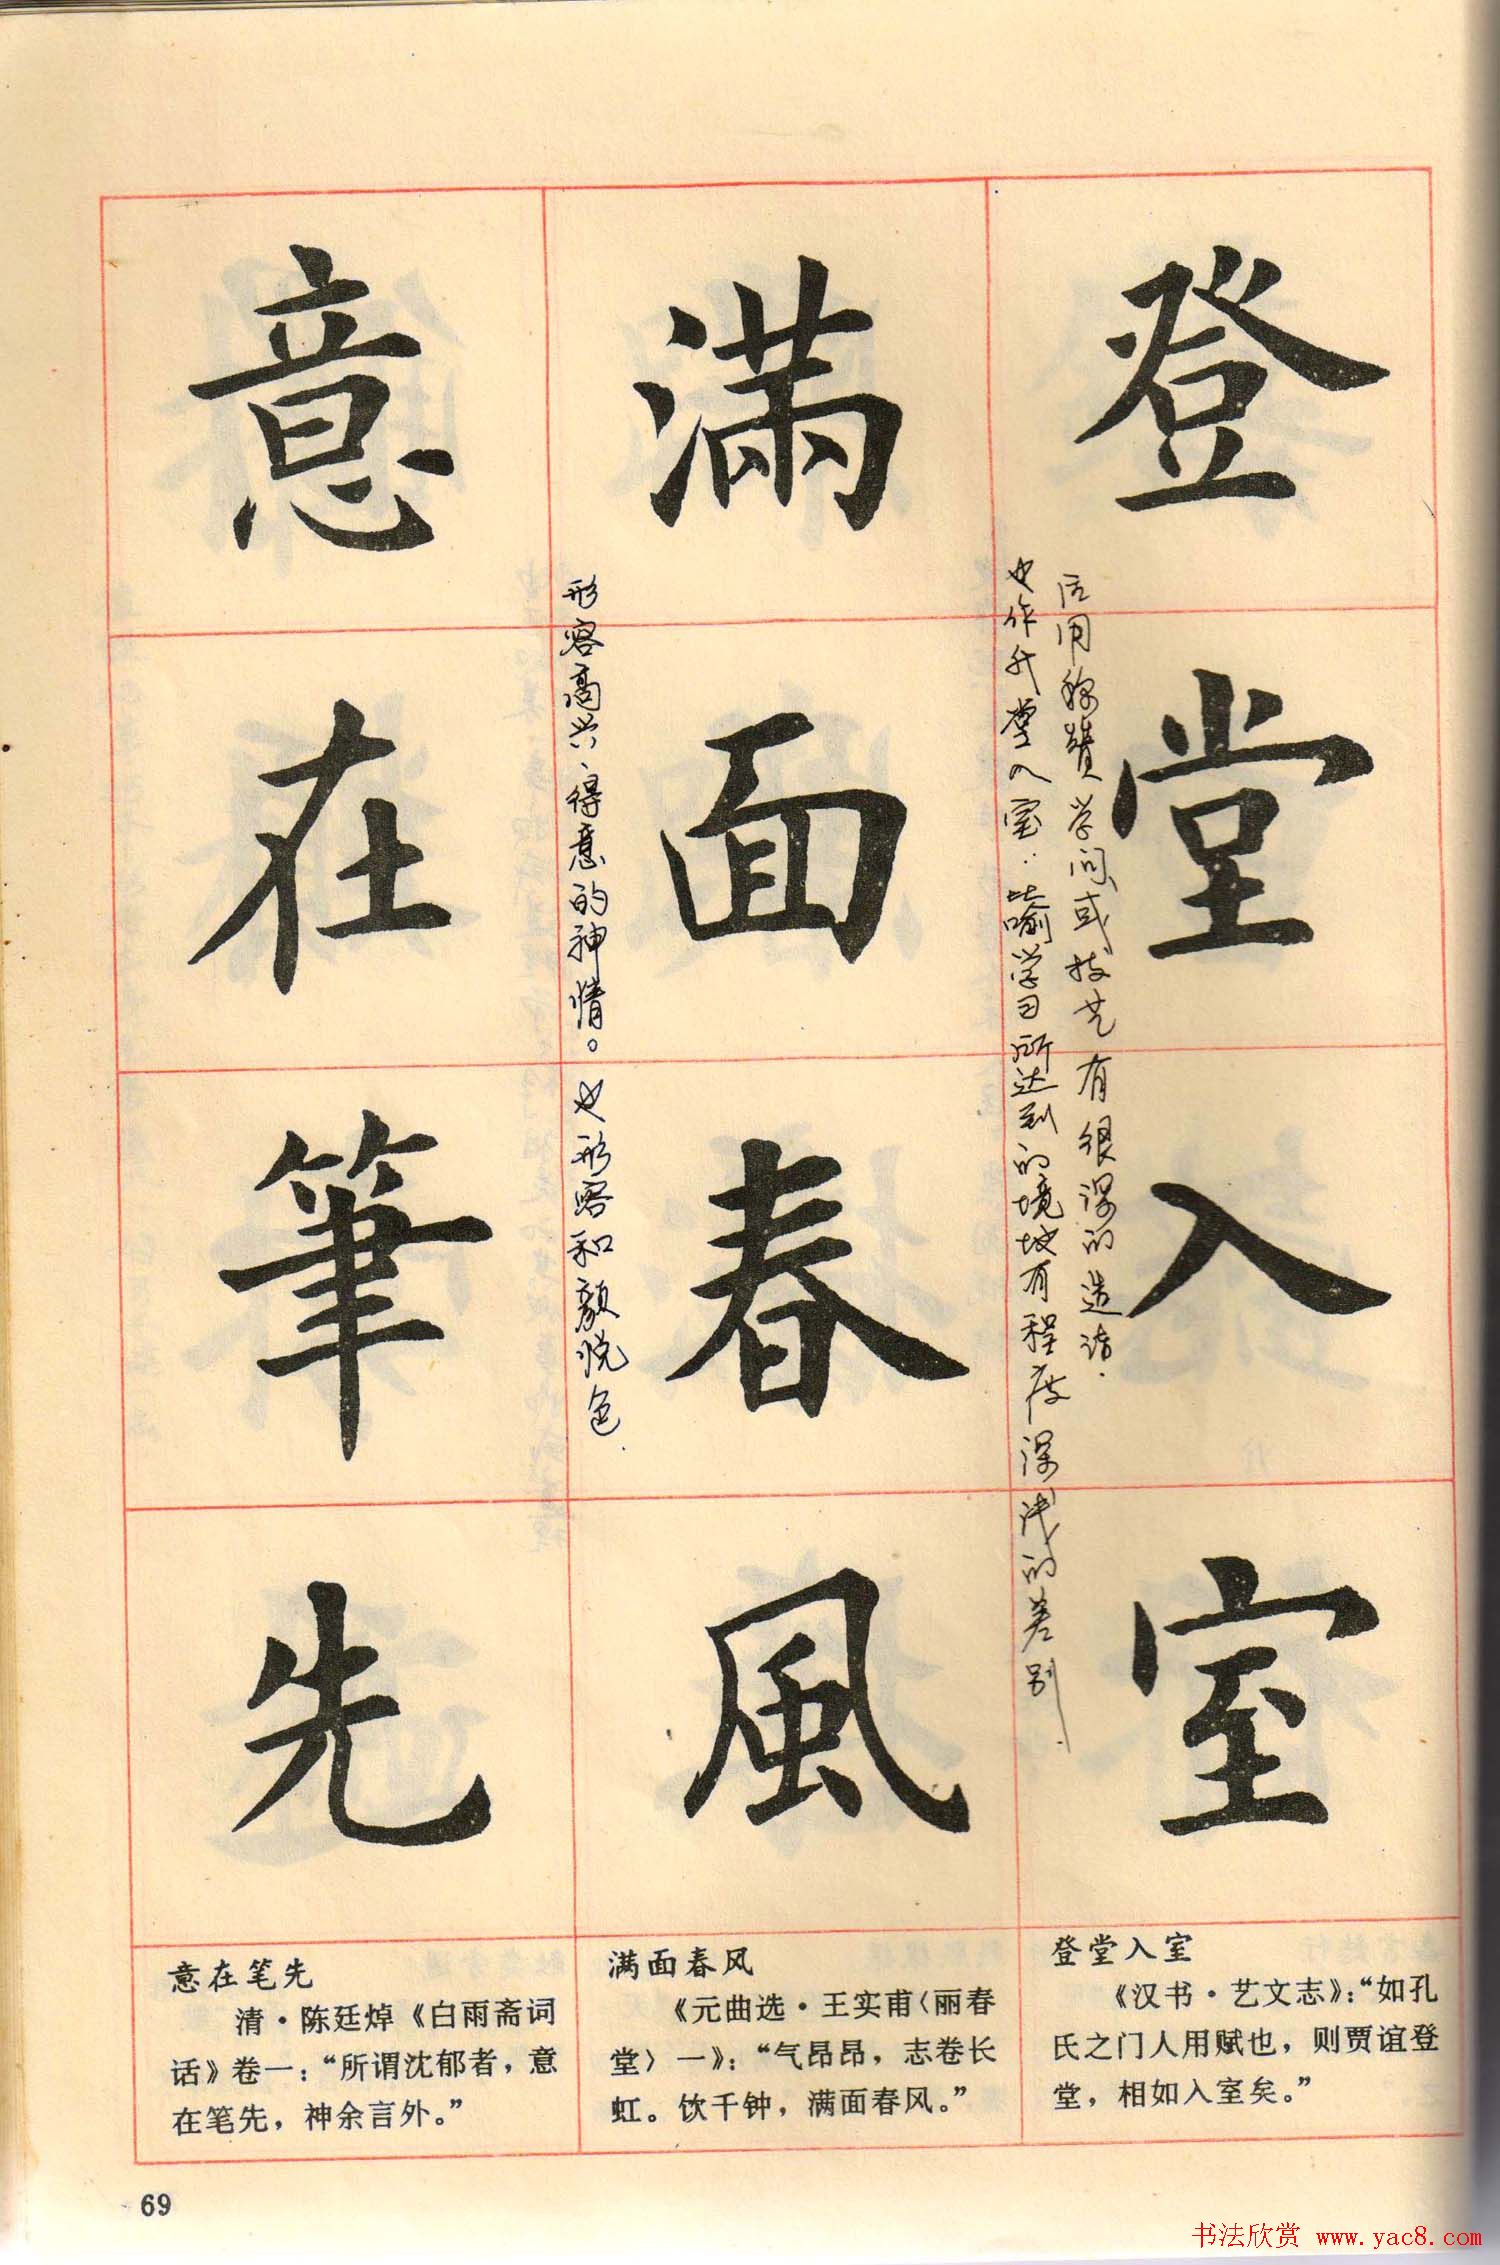 登堂入室
后用称赞学问或技艺有很深的造诣.
也作升堂入室：比喻学习所达到的境地有程度深浅的差别
满面春風
形容高兴、得意的神情。也形容和颜悦色.
意在筆先
登堂入室
《汉书·艺文志》：“如孔
氏之门人用赋也，则贾谊登
堂，相如入室矣。”
满面春风
《元曲选·王实甫〈丽春
堂〉一》：“气昂昂，志卷长
虹。饮千钟，满面春风。”
意在笔先
清·陈廷焯《白雨斋词
话》卷一：“所谓沈郁者，意
在笔先，神余言外。”
69
书法欣赏 www.yac8.com